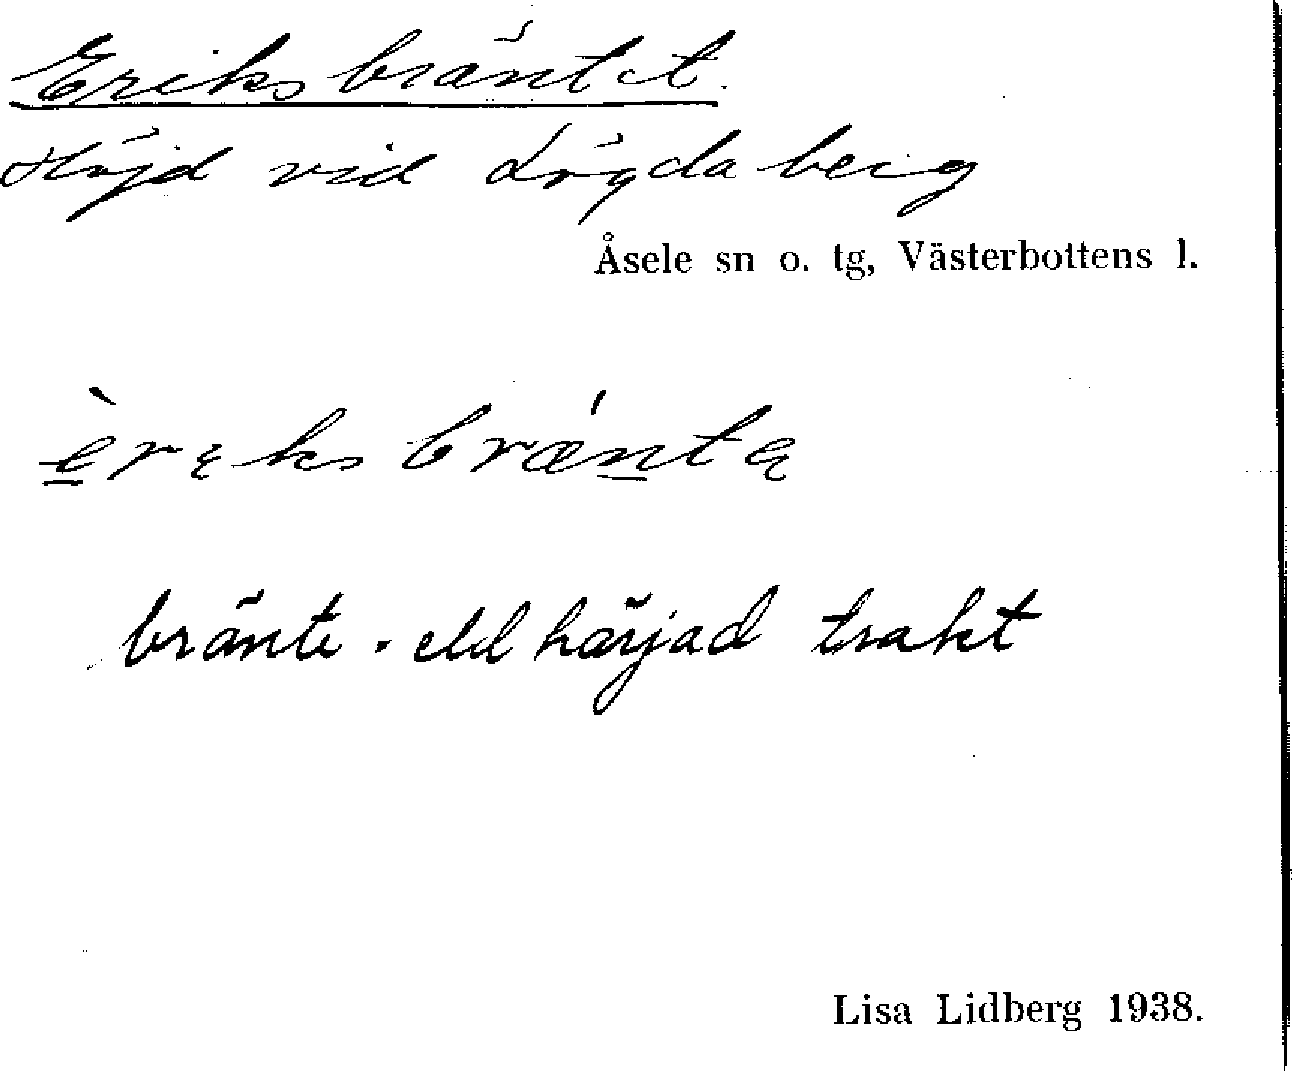 Eriksbräntet.
Höjd vid Lögdaberg
Åsele sn o. tg, Västerbottens l.
bränte. eldhärjad trakt
Lisa Lidberg 1938.